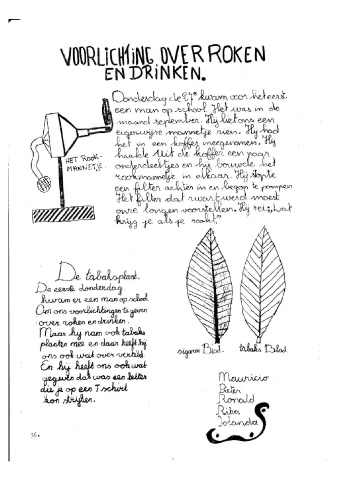 VOORLICHTING OVER ROKEN
EN DRINKEN.
Donderdag de 27e kwam voor het eerst
een man op school. Het was in de
maand september. Hij liet ons een
eigenwijze mannetje zien. Hij had
het in een koffer meegenomen. Hij
haalde uit de koffer een paar
onderdeeltjes en hij bouwde het
rookmannetje in elkaar. Hij stopte
een filter achter in en begon te pompen
Het filter dat zwart werd moest
onze longen voorstellen. Hij zei, wat
krijg je als je rookt."
HET ROOK-
MANNETJE.
De tabaksplant.
De eerste donderdag
kwam er een man op school.
Om ons voorlichtingen te geven
over roken en drinken.
Maar hij nam ook tabaks
planten mee en daar heeft hij
ons ook wat over verteld.
En hij heeft ons ook wat
gegeven dat was een letter
die je op een T shirt
kon strijken.
sigaren Blad.
tabaks Blad.
Mauricio
Peter
Ronald
Rita
Jolanda
36.